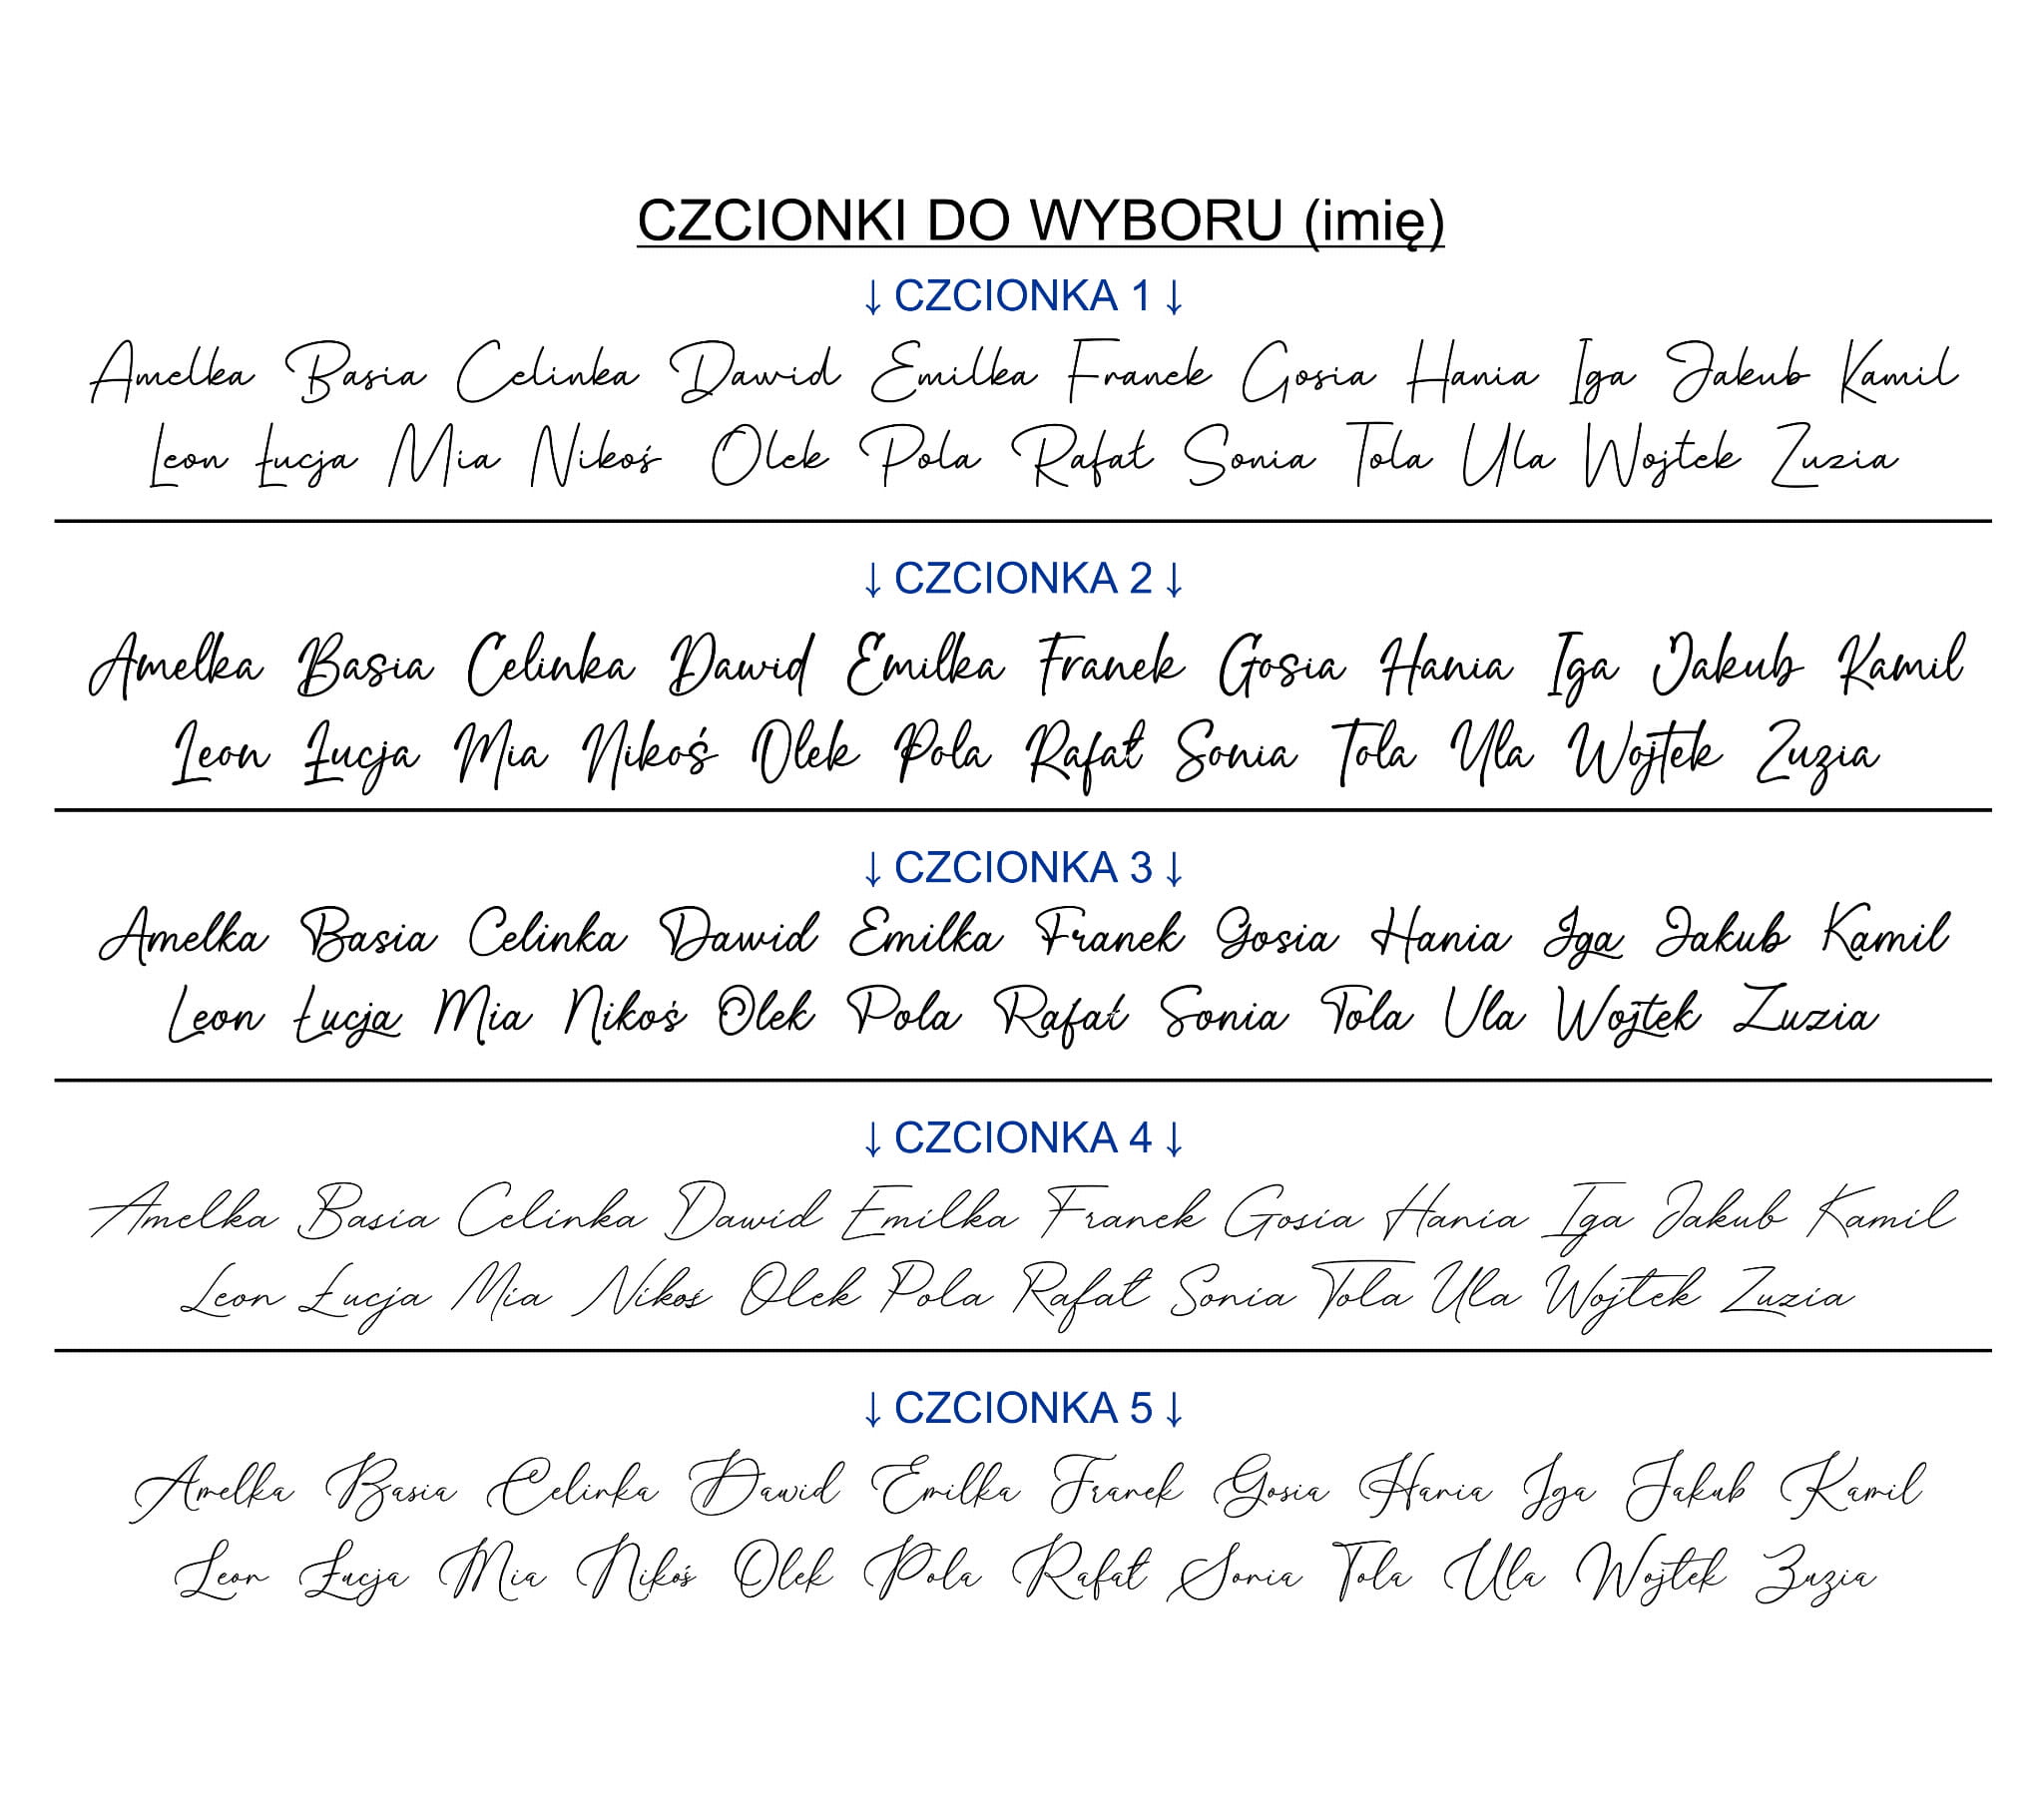 CZCIONKI DO WYBORU (imię)
↓ CZCIONKA 1 ↓
Amelka Basia Celinka Dawid Emilka Franek Gosia Hania Iga Jakub Kamil
Leon Łucja Mia Nikoś Olek Pola Rafał Sonia Tola Ula Wojtek Zuzia
↓ CZCIONKA 2 ↓
Amelka Basia Celinka Dawid Emilka Franek Gosia Hania Iga Jakub Kamil
Leon Łucja Mia Nikoś Olek Pola Rafał Sonia Tola Ula Wojtek Zuzia
↓ CZCIONKA 3 ↓
Amelka Basia Celinka Dawid Emilka Franek Gosia Hania Iga Jakub Kamil
Leon Łucja Mia Nikoś Olek Pola Rafał Sonia Tola Ula Wojtek Zuzia
↓ CZCIONKA 4 ↓
Amelka Basia Celinka Dawid Emilka Franek Gosia Hania Iga Jakub Kamil
Leon Łucja Mia Nikoś Olek Pola Rafał Sonia Tola Ula Wojtek Zuzia
↓ CZCIONKA 5 ↓
Amelka Basia Celinka Dawid Emilka Franek Gosia Hania Iga Jakub Kamil
Leon Łucja Mia Nikoś Olek Pola Rafał Sonia Tola Ula Wojtek Zuzia